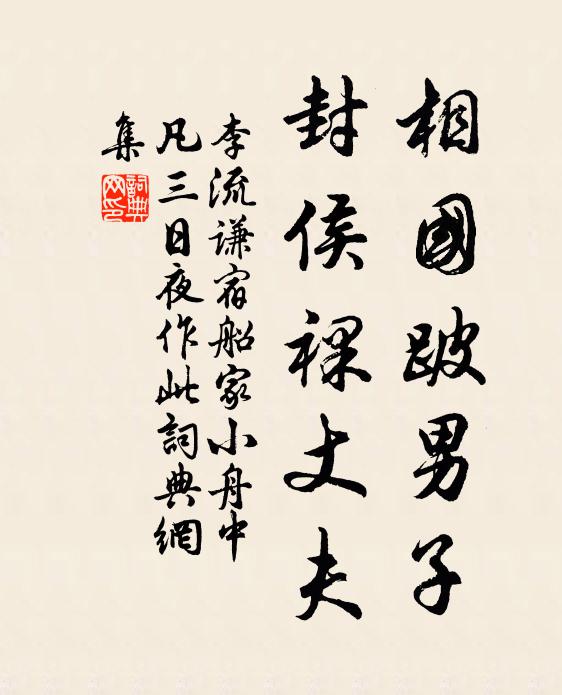 相國跛男子
封侯裸丈夫
李流謙宿船家小舟中
凡三日夜作此詞典網
集
詞典
网印